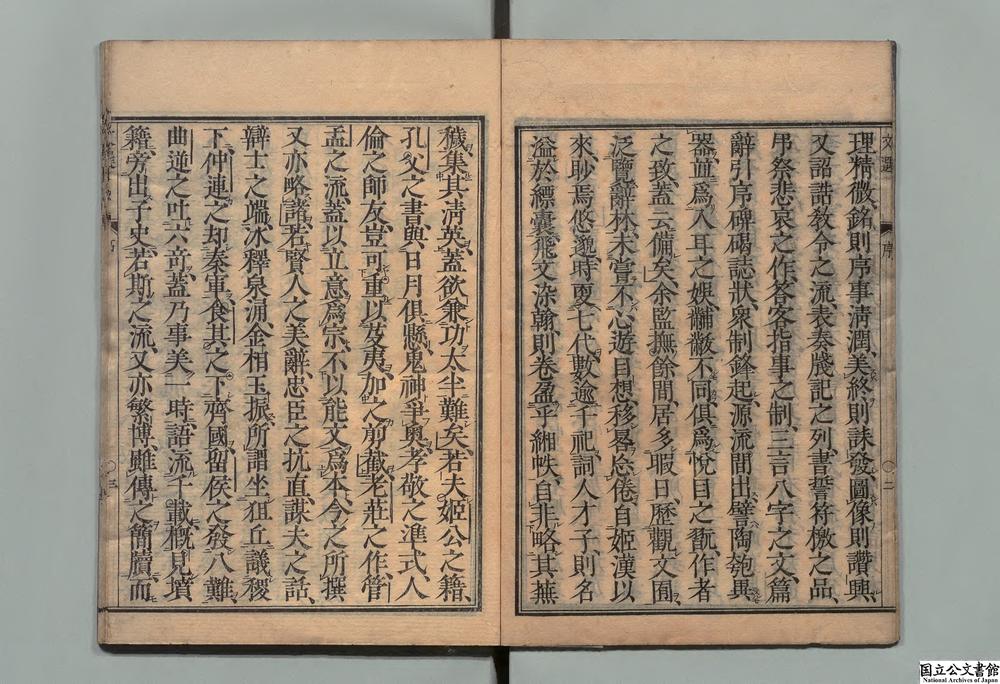 理精微銘則序事清潤美終則誄發圖像則讚興
又詔誥教令之流表奏牋記之列書誓符檄之品
弔祭悲哀之作答客指事之制三言八字之文篇
辭引序碑碣誌狀衆制鋒起源流間出譬陶匏異
器並爲入耳之娛黼黻不同俱爲悅目之翫作者
之致蓋云備矣余監撫餘閒居多暇日歷觀文囿
泛覽辭林未嘗不心遊目想移晷忘倦自姬漢以
來眇焉悠邈時更七代數逾千祀詞人才子則名
溢於縹囊飛文染翰則卷盈乎緗帙自非略其蕪
穢集其清英蓋欲兼功太半難矣若夫姬公之籍
孔父之書與日月俱懸鬼神爭奧孝敬之准式人
倫之師友豈可重以芟夷加之剪截老莊之作管
孟之流蓋以立意爲宗不以能文爲本今之所撰
又亦略諸若賢人之美辭忠臣之抗直謀夫之話
辯士之端冰釋泉涌金相玉振所謂坐狙丘議稷
下仲連之却秦軍食其之下齊國留侯之發八難
曲逆之吐六奇蓋乃事美一時語流千載概見墳
籍旁出子史若斯之流又亦繁博雖傳之簡牘而
文選
序
二
序
三
国立公文書館
National Archives of Japan